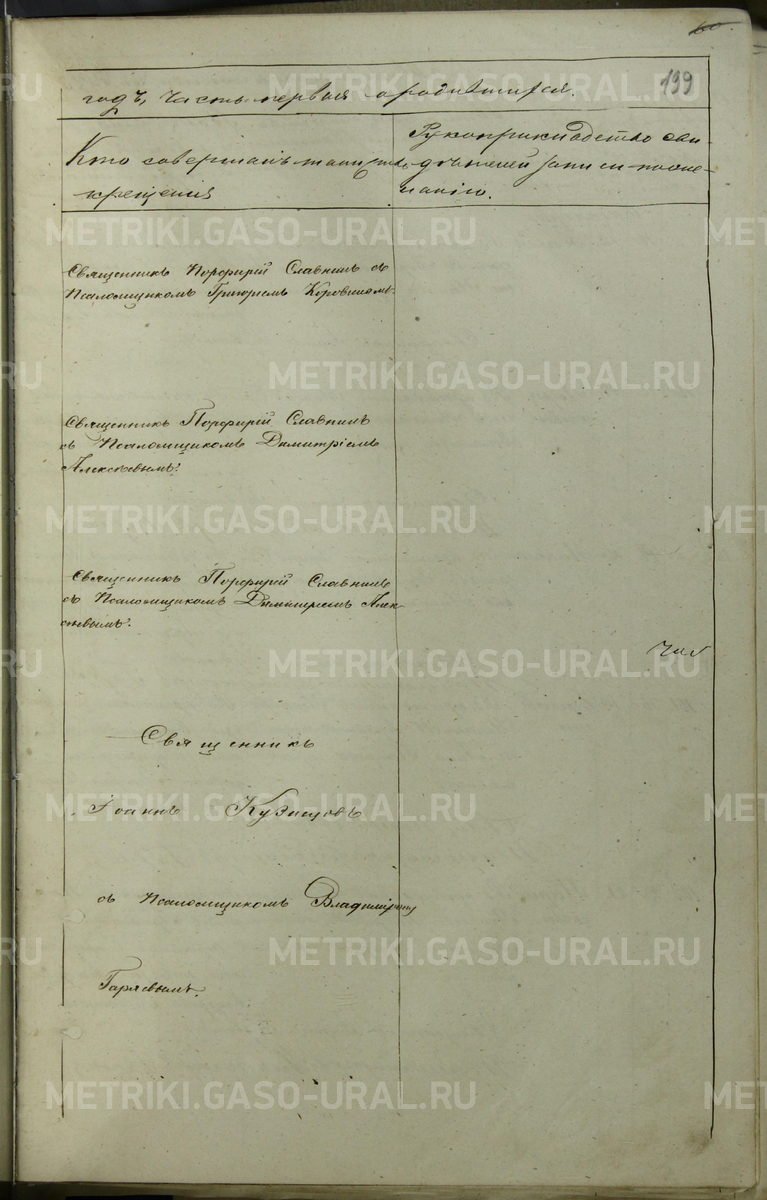 60.
199
годъ, часть первая о родившихся.
Кто совершалъ таинство
крещенія
Рукоприкладство сви-
дѣтелей записи по жела-
нію.
Священникъ Порфирій Славнинъ съ
Псаломщикомъ Григоріемъ Коровинымъ.
Священникъ Порфирій Славнинъ
съ Псаломщикомъ Димитріемъ
Алексѣевымъ.
Священникъ Порфирій Славнинъ
съ Псаломщикомъ Димитріемъ Алек-
сѣевымъ.
Священникъ
Іоаннъ Кузнецовъ
съ Псаломщикомъ Владиміромъ
Гаряевымъ.
METRIKI.GASO-URAL.RU